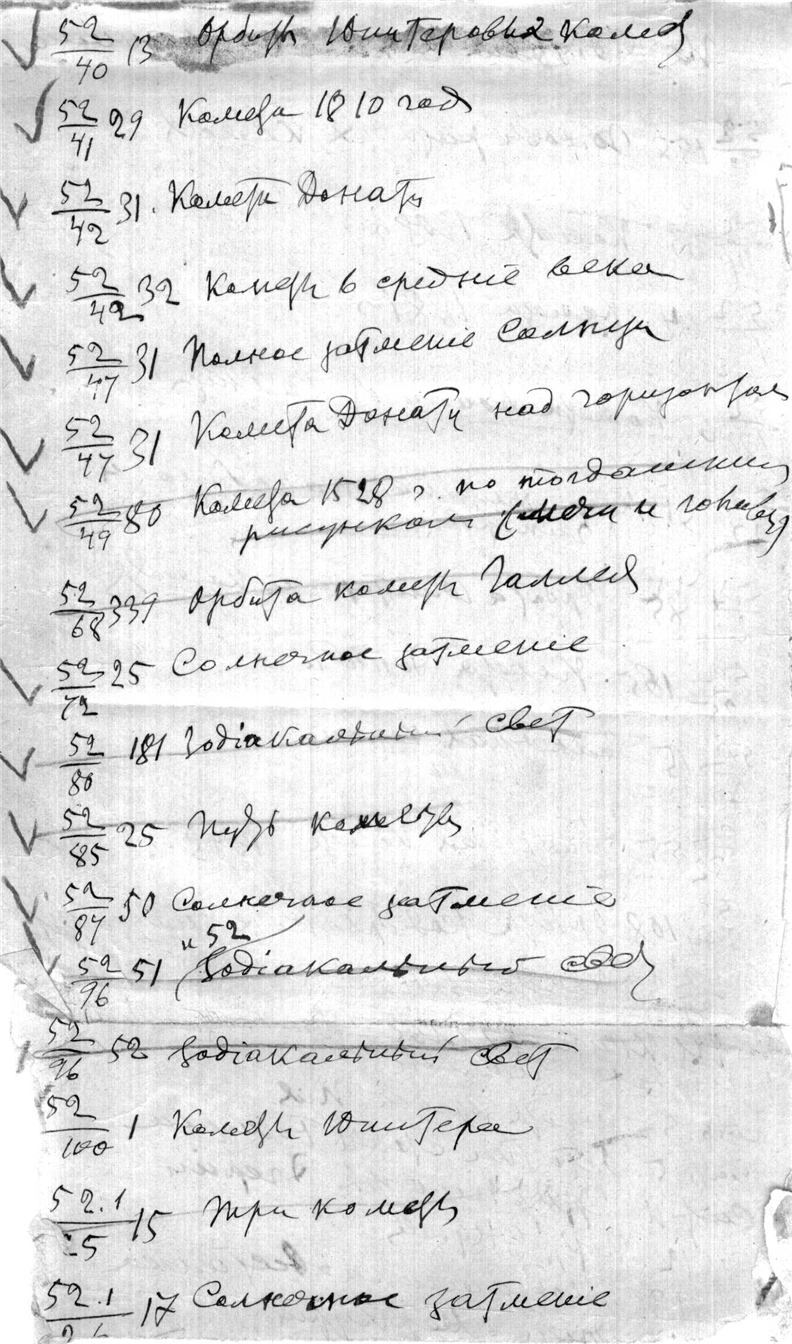 52/40 13 Орбиты Юпитеровых комет
52/41 29 Комета 1810 года
52/42 31. Комета Донати
52/42 32 Кометы в средніе века
52/47 31 Полное затменіе Солнца
52/47 31 Комета Донати над горизонтом
52/49 80 Комета 1528 г. по тогдашним
рисункам (мечи и головы)
52/68 339 Орбита кометы Галлея
52/72 25 Солнечное затменіе
52/80 181 Зодіакальный свет
52/85 25 Путь кометы
52/87 50 Солнечное затменіе
и 52
52/96 51 Зодіакальный свет
52/96 52 Зодіакальный свет
52/100 1 Кометы Юпитера
52.1/25 15 Три кометы
52.1 17 Солнечное затменіе